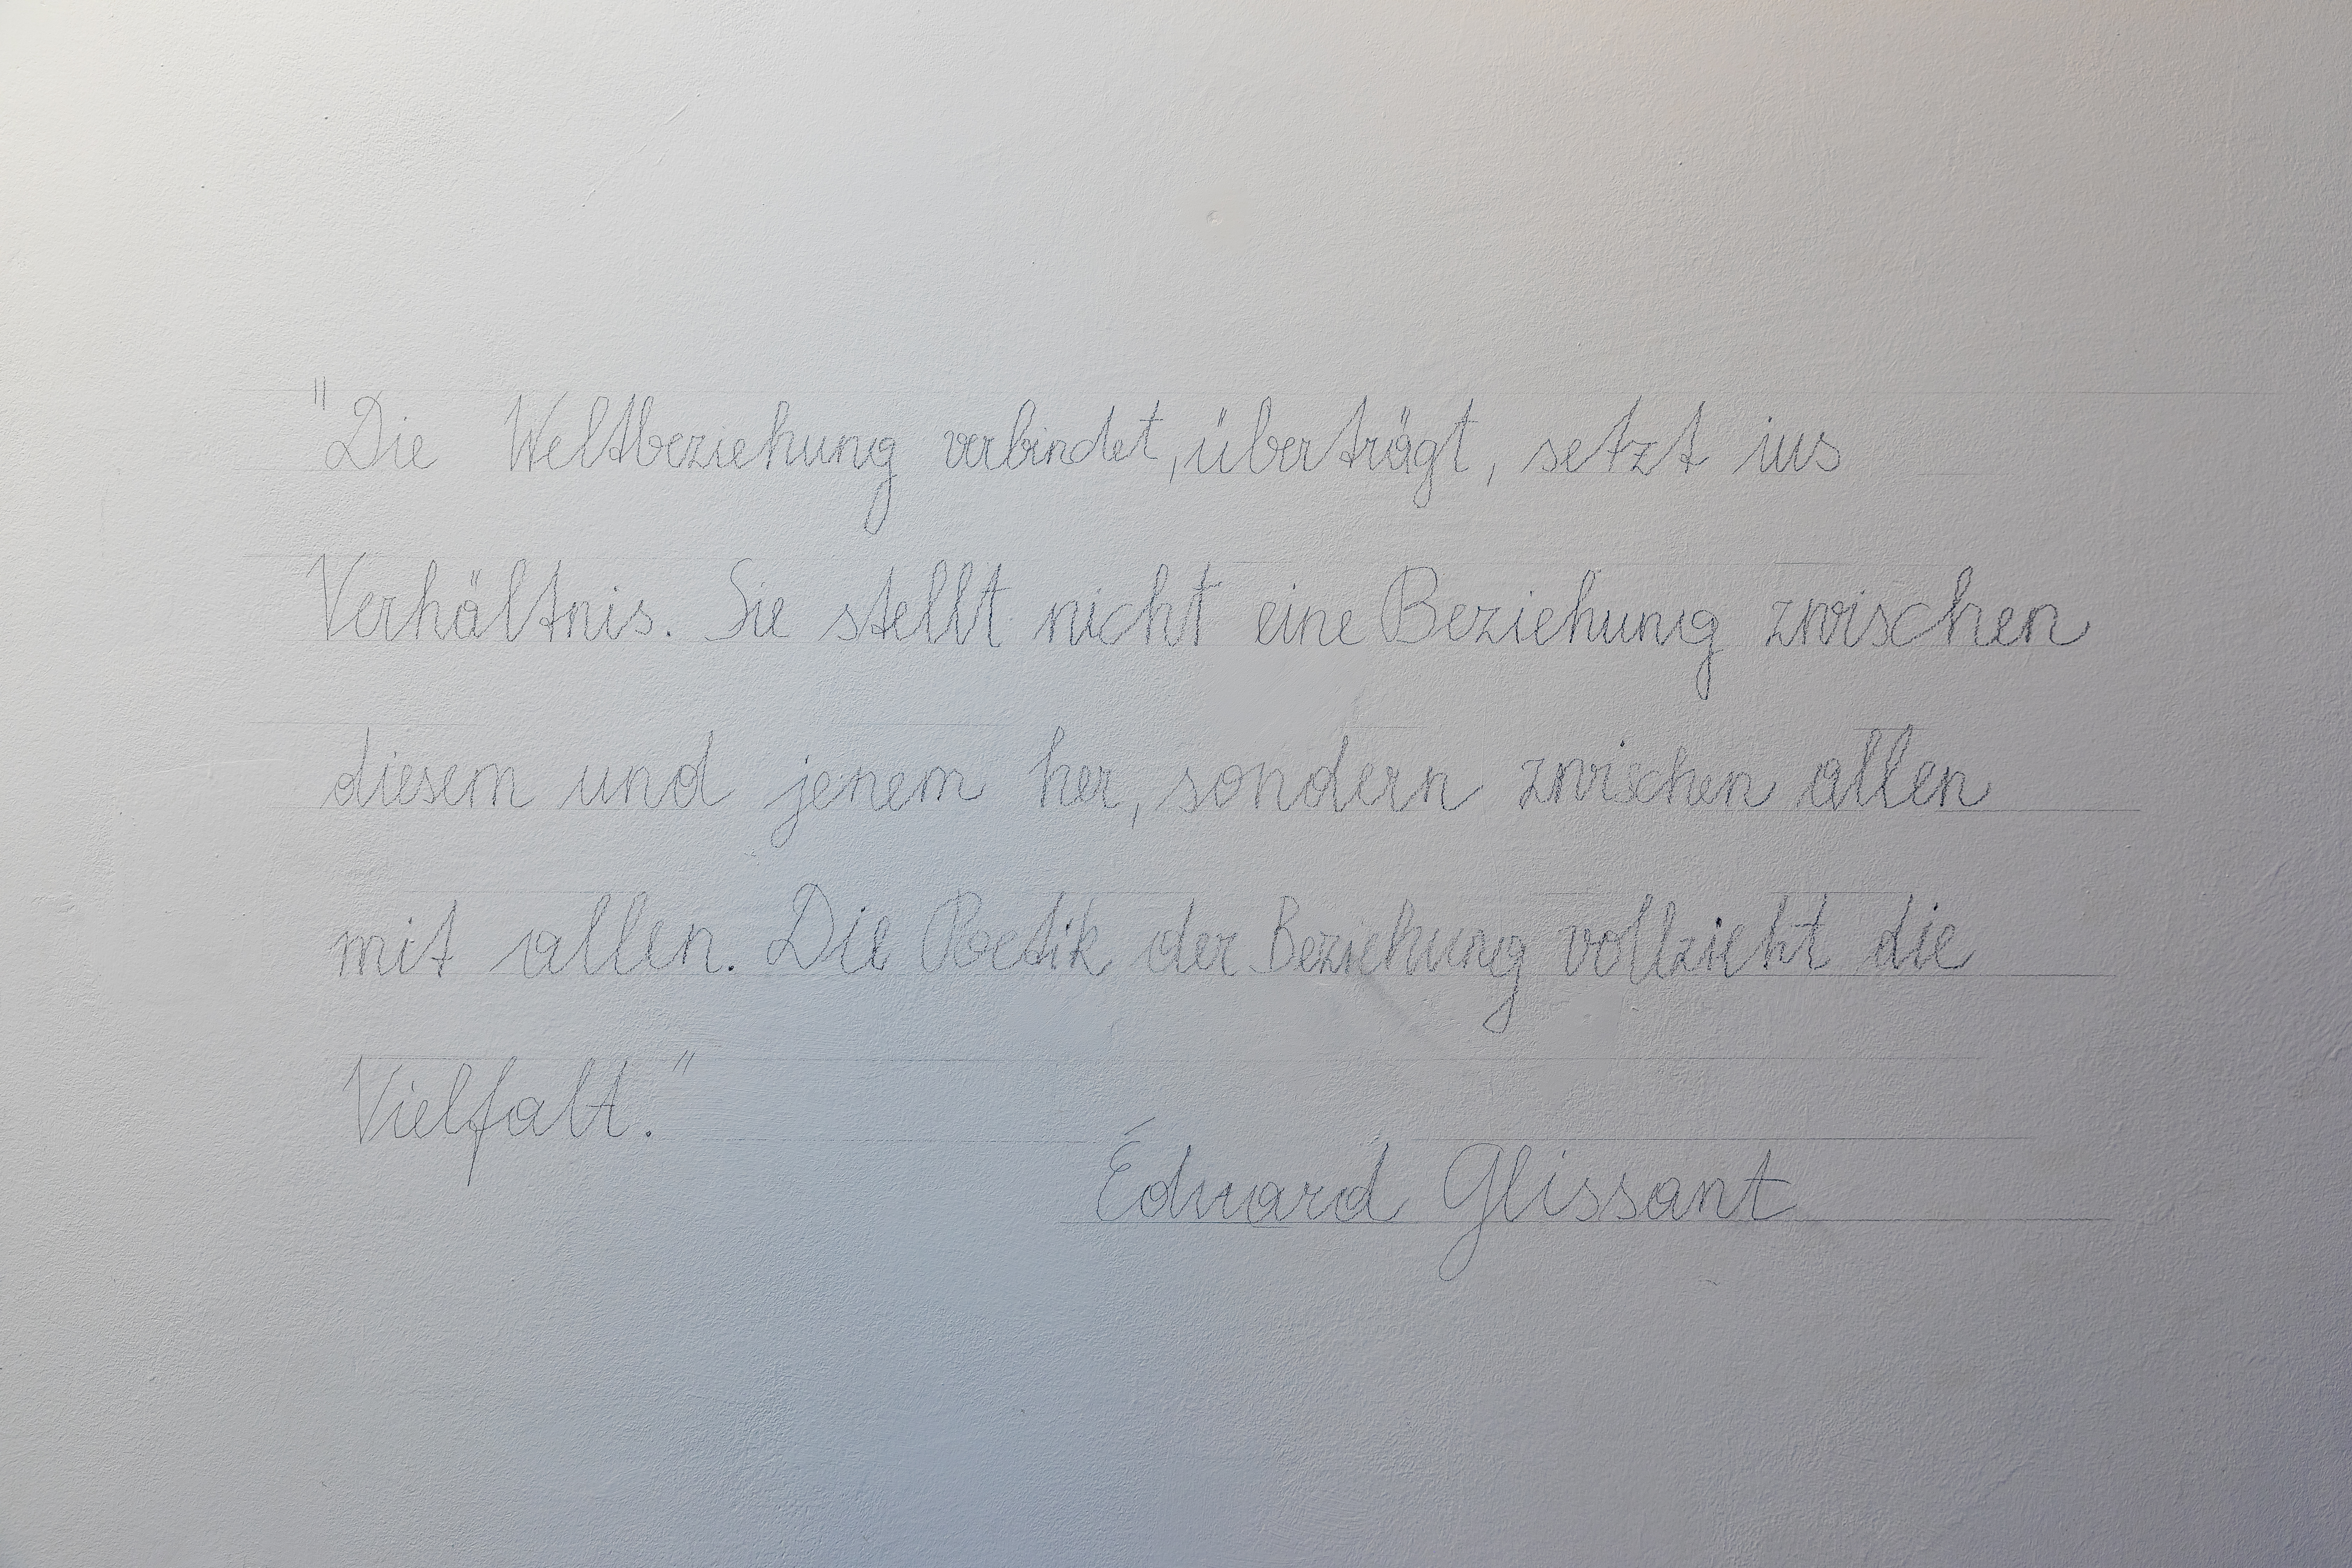 "Die Weltbeziehung verbindet, überträgt, setzt ins
Verhältnis. Sie stellt nicht eine Beziehung zwischen
diesem und jenem her, sondern zwischen allen
mit allen. Die Poetik der Beziehung vollzieht die
Vielfalt."
Éduard Glissant